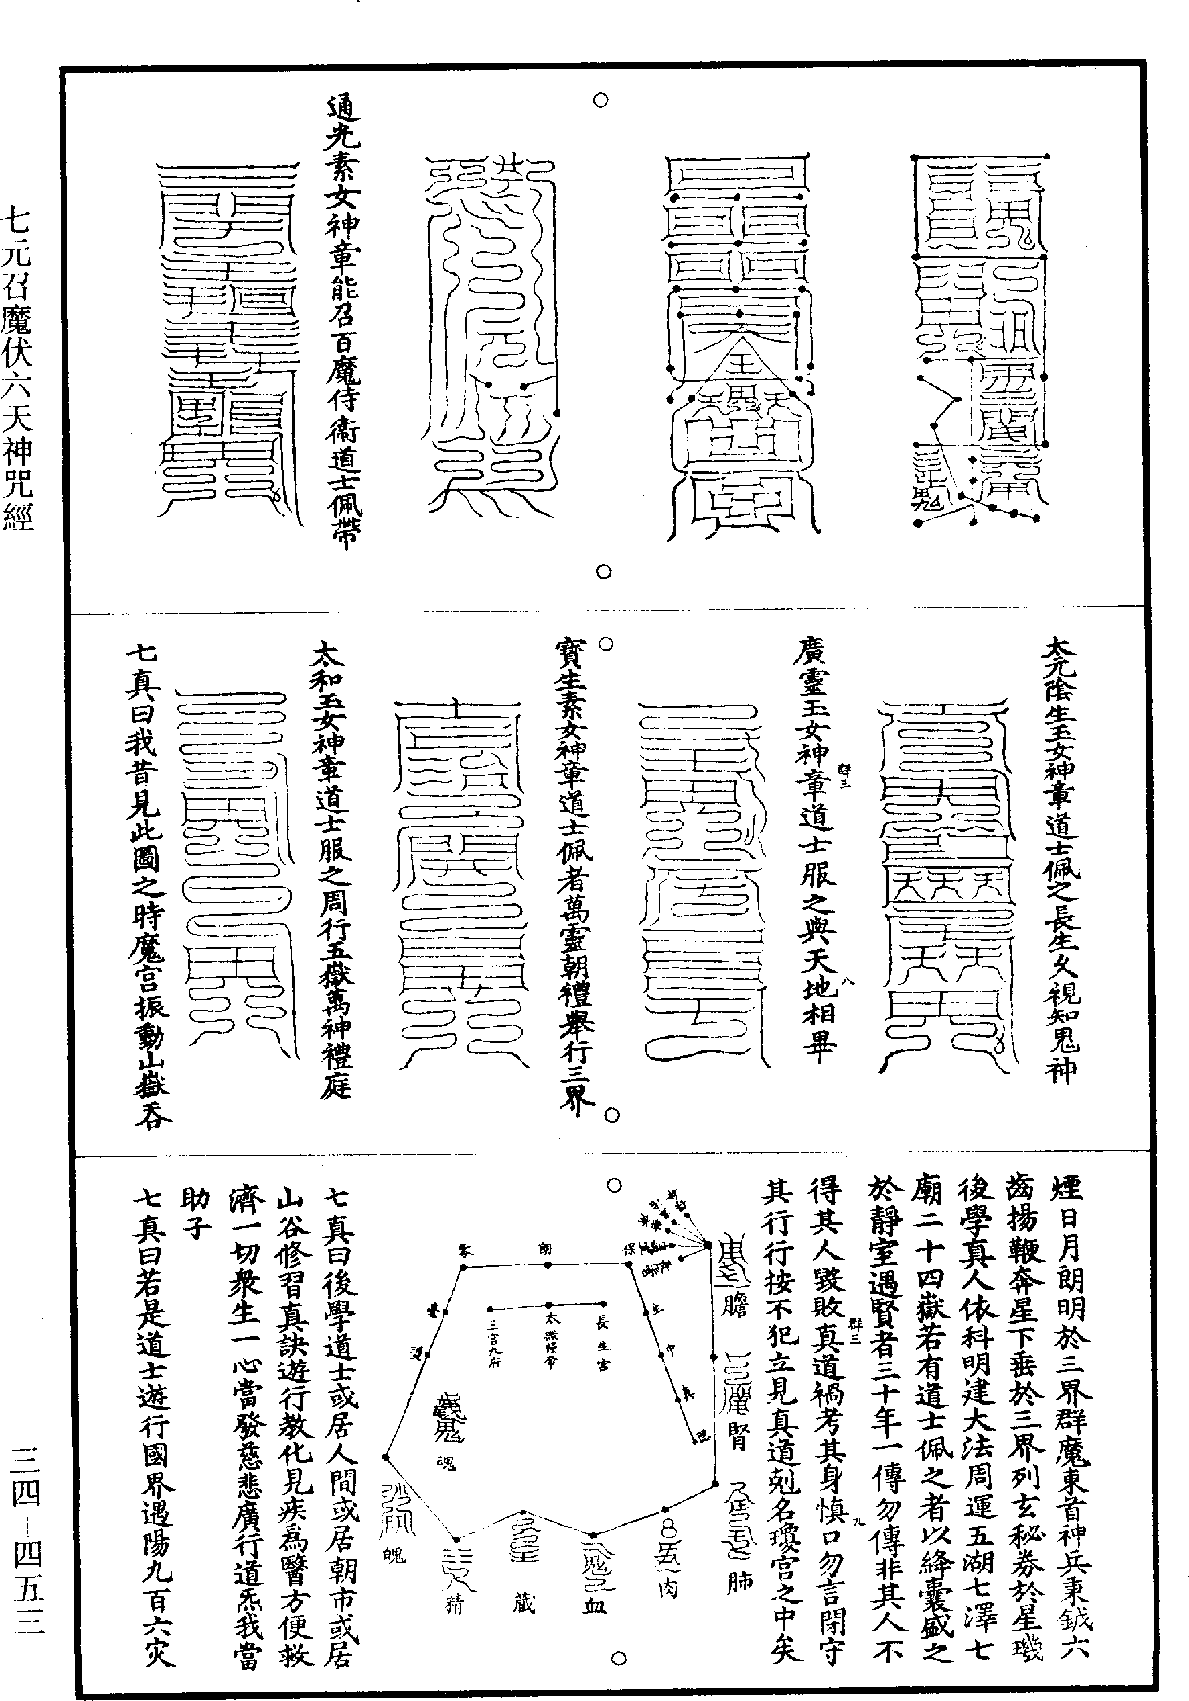 七元召魔伏六天神咒經
三四—四五三
通光素女神章能召百魔侍衞道士佩帶
太元陰生玉女神章道士佩之長生久視知鬼神
廣靈玉女神章道士服之與天地相畢
群三
八
寶生素女神章道士佩者萬靈朝禮舉行三界
太和玉女神章道士服之周行五嶽萬神禮庭
七真曰我昔見此圖之時魔宮振動山嶽吞
煙日月朗明於三界群魔東首神兵秉鉞六
齒揚鞭奔星下垂於三界列玄秘券於星璣
後學真人依科明建大法周運五湖七澤七
廟二十四嶽若有道士佩之者以絳囊盛之
於靜室遇賢者三十年一傳勿傳非其人不
得其人毀敗真道禍考其身慎口勿言閉守
群三
九
其行行按不犯立見真道剋名瓊宮之中矣
膽
腎
肺
肉
血
藏
精
魄
魂
保
朗
長生宮
三宮九府
七真曰後學道士或居人間或居朝市或居
山谷修習真訣遊行教化見疾為醫方便救
濟一切衆生一心當發慈悲廣行道炁我當
助子
七真曰若是道士遊行國界遇陽九百六灾